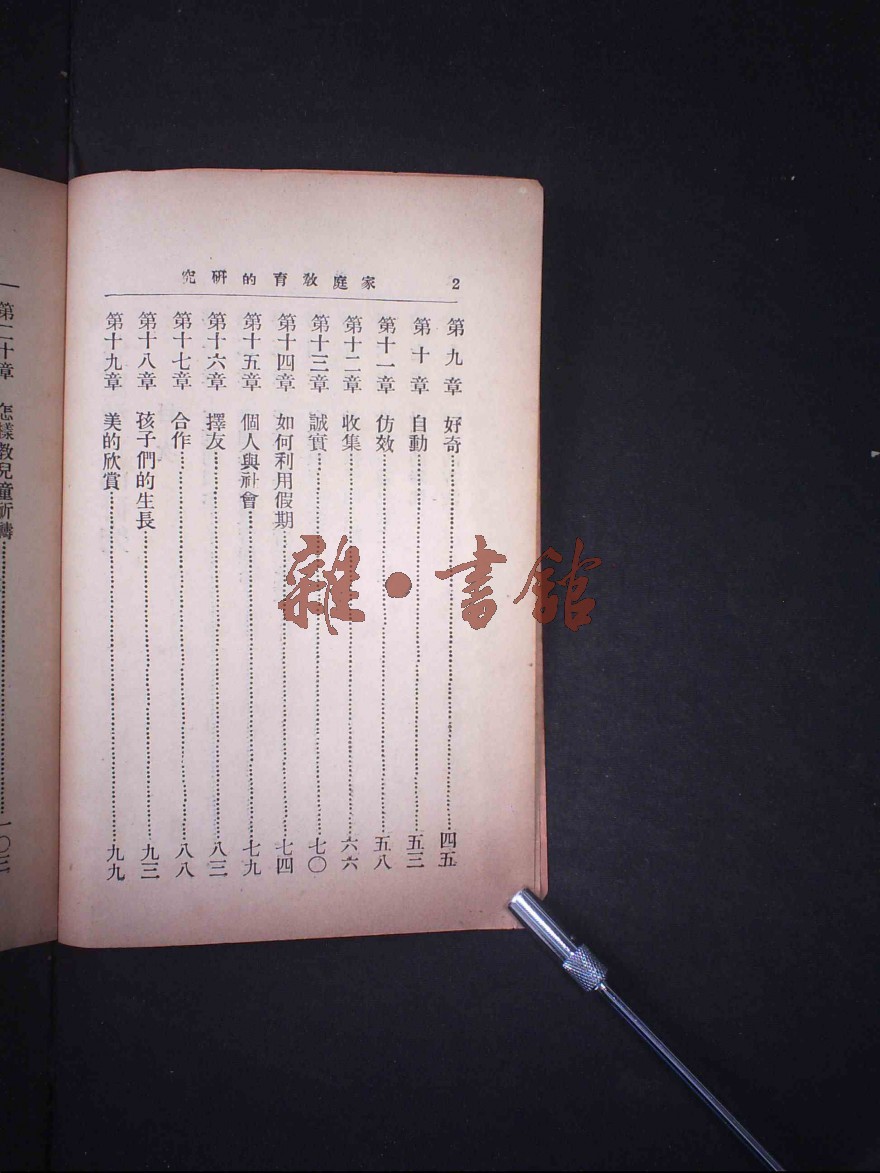 2 家庭教育的研究
第九章 好奇…………四五
第十章 自動…………五三
第十一章 仿效…………五八
第十二章 收集…………六六
第十三章 誠實…………七〇
第十四章 如何利用假期…………七四
第十五章 個人與社會…………七九
第十六章 擇友…………八三
第十七章 合作…………八八
第十八章 孩子們的生長…………九三
第十九章 美的欣賞…………九九
第二十章 怎樣教兒童祈禱…………一〇三
雜·書館